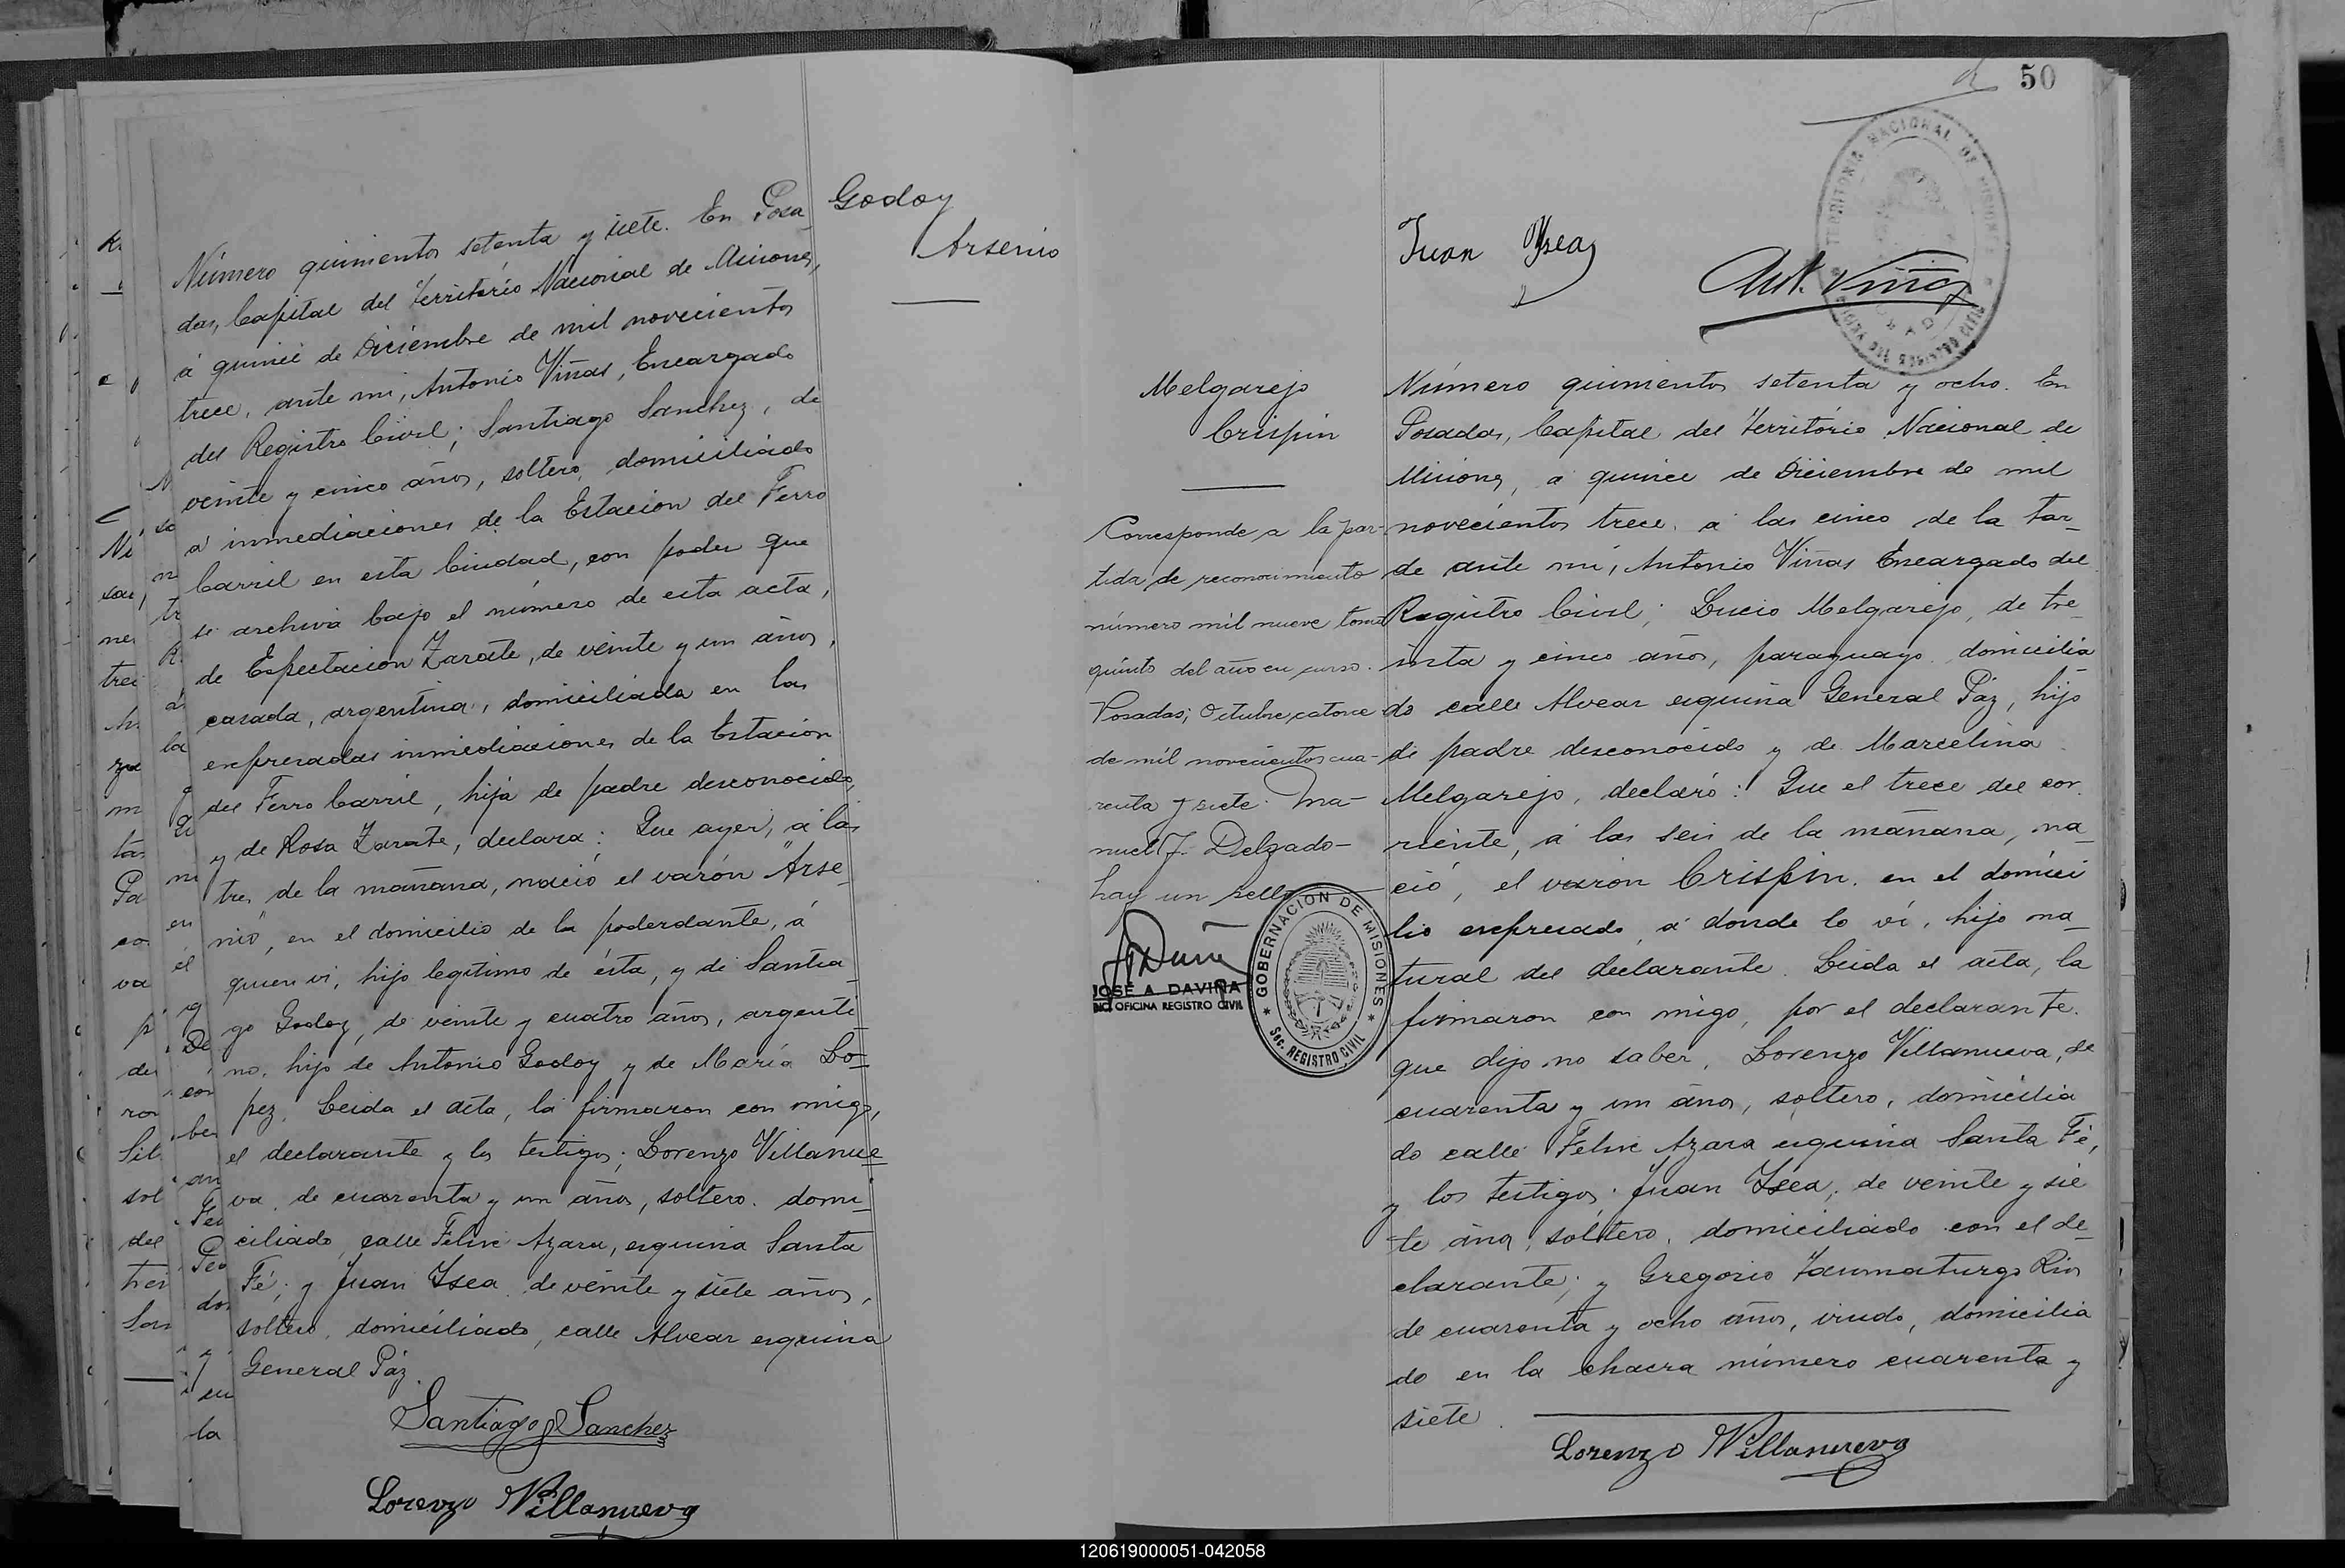 Godoy
Arsenio
Número quinientos setenta y siete. En Posa
das, Capital del Territorio Nacional de Misiones,
á quince de Diciembre de mil novecientos
trece, ante mi, Antonio Viñas, Encargado
del Registro Civil; Santiago Sanchez, de
veinte y cinco años, soltero, domiciliado
á inmediaciones de la Estacion del Ferro
Carril en esta Ciudad, con poder que
se archiva bajo el número de esta acta,
de Espectacion Zarate, de veinte y un años,
casada, argentina, domiciliada en las
expresadas inmediaciones de la Estacion
del Ferro Carril, hija de padre desconocido,
y de Rosa Zarate, declara: Que ayer, á las
tres de la mañana, nació el varón "Arse-
nio", en el domicilio de la poderdante, á
quien vi, hijo legítimo de ésta, y de Santia-
go Godoy, de veinte y cuatro años, argenti
no, hijo de Antonio Godoy y de María Lo-
pez. Leida el acta, la firmaron con migo,
el declarante y los testigos; Lorenzo Villanue-
va, de cuarenta y un años, soltero, domi-
ciliado, calle Felix Azara, esquina Santa
Fé; y Juan Isea, de veinte y siete años,
soltero, domiciliado, calle Alvear esquina
General Páz.
Santiago Sanchez
Lorenzo Villanueva
50
TERRITORIO NACIONAL DE MISIONES
Juan Ysea
Ant. Viñas
Melgarejo
Crispin
Número quinientos setenta y ocho. En
Posadas, Capital del Territorio Nacional de
Misiones, a quince de Diciembre de mil
novecientos trece, a las cinco de la tar-
de ante mi, Antonio Viñas Encargado del
Registro Civil; Lucio Melgarejo, de tre-
inta y cinco años, paraguayo, domicilia
do calle Alvear esquina General Páz, hijo
de padre desconocido y de Marcelina
Melgarejo, declaró: Que el trece del cor-
riente, á las seis de la mañana, na-
ció, el varon Crispin, en el domici
lio expresado, á donde lo ví, hijo na-
tural del declarante. Leida el acta, la
firmaron con migo, por el declarante,
que dijo no saber, Lorenzo Villanueva, de
cuarenta y un años, soltero, domicilia
do calle Felix Azara esquina Santa Fé,
y los testigos; Juan Isea, de veinte y sie
te años, soltero, domiciliado con el de-
clarante; y Gregorio Taumaturgo Rios
de cuarenta y ocho años, viudo, domicilia
do en la chacra número cuarenta y
siete.
Lorenzo Villanueva
Corresponde a la par-
tida de reconocimiento
número mil nueve tomo
quinto del año en curso.
Posadas; Octubre catorce
de mil novecientos cua-
renta y siete. Ma-
nuel J. Delgado-
hay un sello
JOSÉ A. DAVIÑA
OFICINA REGISTRO CIVIL
GOBERNACION DE MISIONES
Sec. REGISTRO CIVIL
120619000051-042058